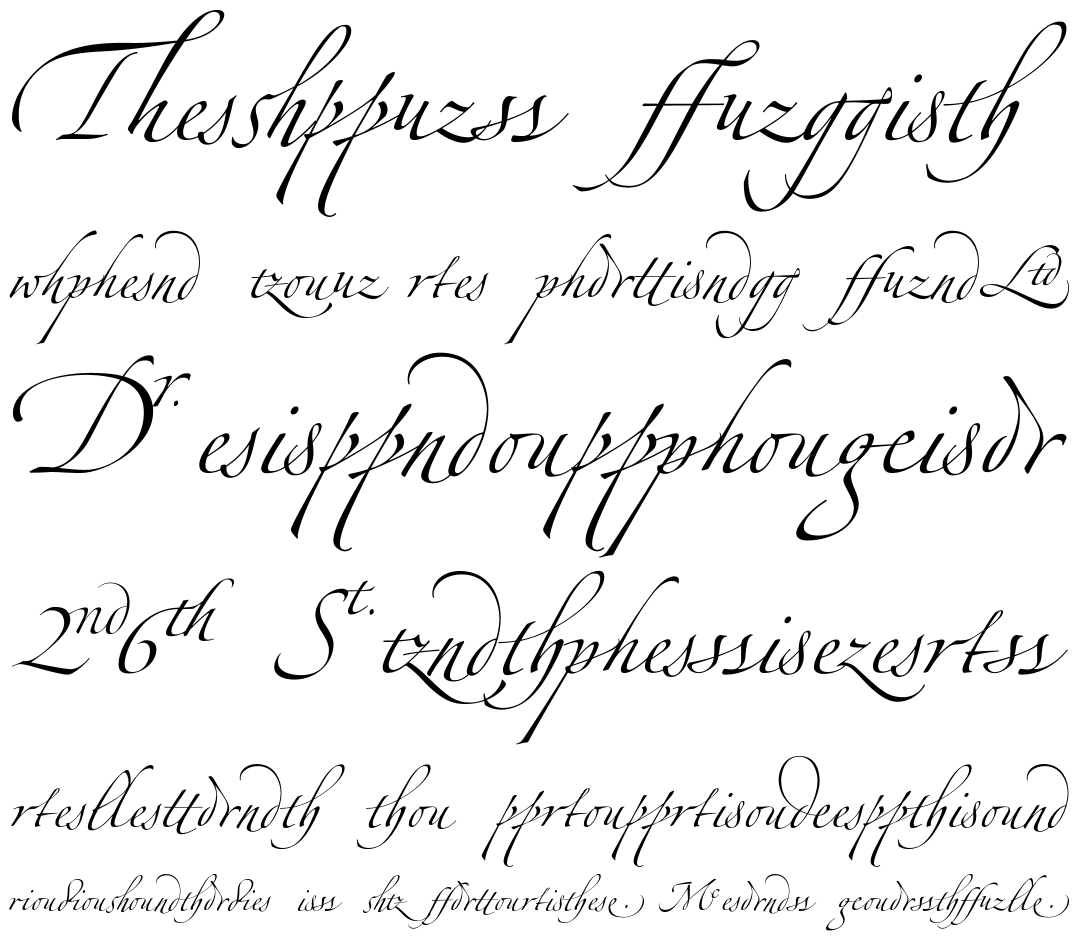 Thesshppuzss ffuzggisth
whphesnd tzouuz rtes phdrttisndgg ffuznd Ltd
Dr. esisppndouppphougeisdr
2nd6th St. tzndthphesssisezesrtss
rtesllesttdrndth thou pprtoupprtisoudeesppthisound
rioudioushoundthdrdies isss shtz ffdrttourtisthese. Mc esdrndss geoudrssthffuzlle.